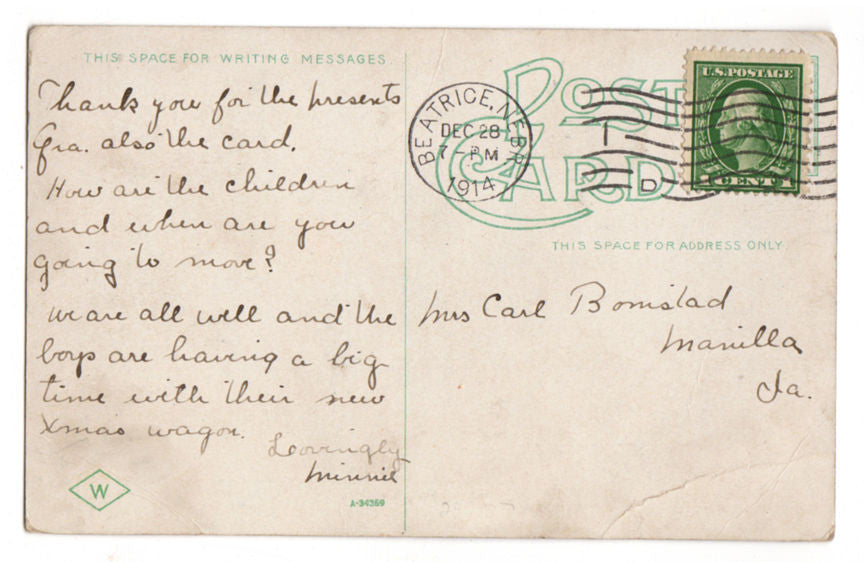 THIS SPACE FOR WRITING MESSAGES
Thank you for the presents
Gra. also the card.
How are the children
and when are you
going to move?
We are all well and the
boys are having a big
time with their new
Xmas wagon.
Lovingly
Minnie
W
A-34369
POST
CARD
BEATRICE, NEBR
DEC 28
7 - PM
1914
1
D
U.S. POSTAGE
1 CENT 1
THIS SPACE FOR ADDRESS ONLY.
Mrs Carl Bomstad
Manilla
Ia.